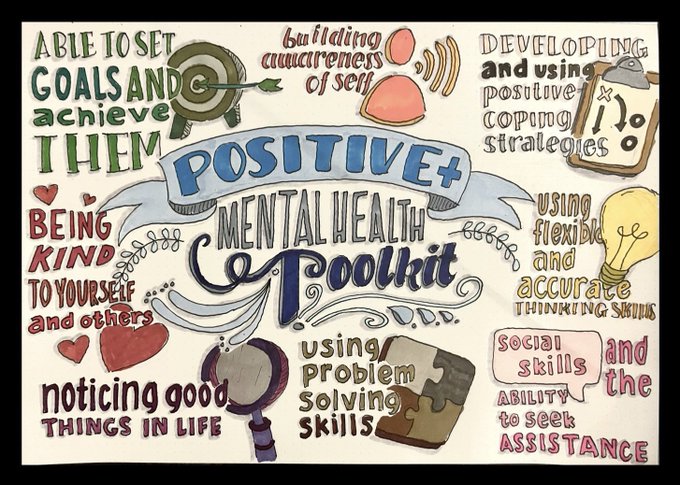 ABLE TO SET
GOALS AND
achieve
THEM
building
awareness
of self
DEVELOPING
and using
positive
coping
strategies
POSITIVE+
MENTAL HEALTH
Toolkit
BEING
KIND
TO YOURSELF
and others
using
flexible
and
accurate
THINKING SKILLS
noticing good
THINGS IN LIFE
using
problem
solving
skills
social
skills
and
the
ABILITY
to seek
ASSISTANCE